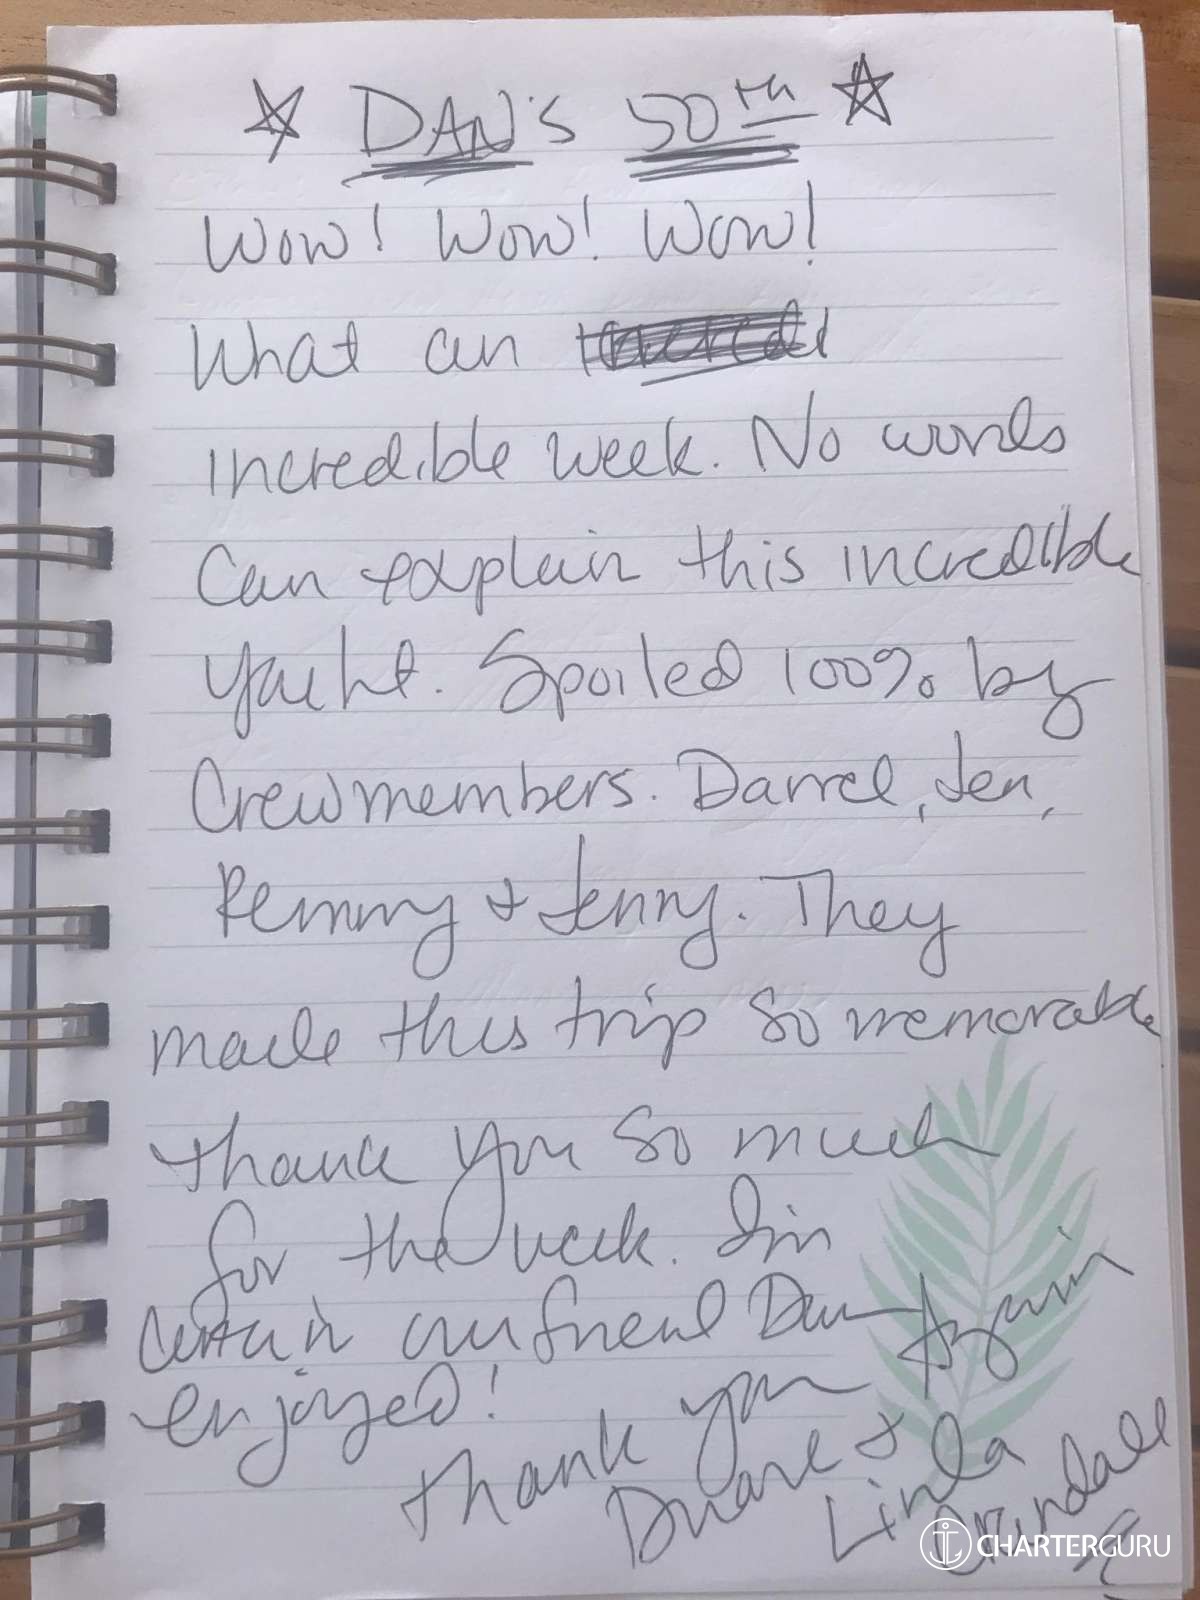 ☆ DAN'S 50th ☆
Wow! Wow! Wow!
What an
incredible week. No words
Can explain this incredible
yacht. Spoiled 100% by
Crewmembers. Darrel, Jen,
Remmy & Jenny. They
made this trip so memorable
thank you so much
for the week. I'm
certain our friend Dan
enjoyed!
Thank you Again
Duane &
Linda
CHARTERGURU